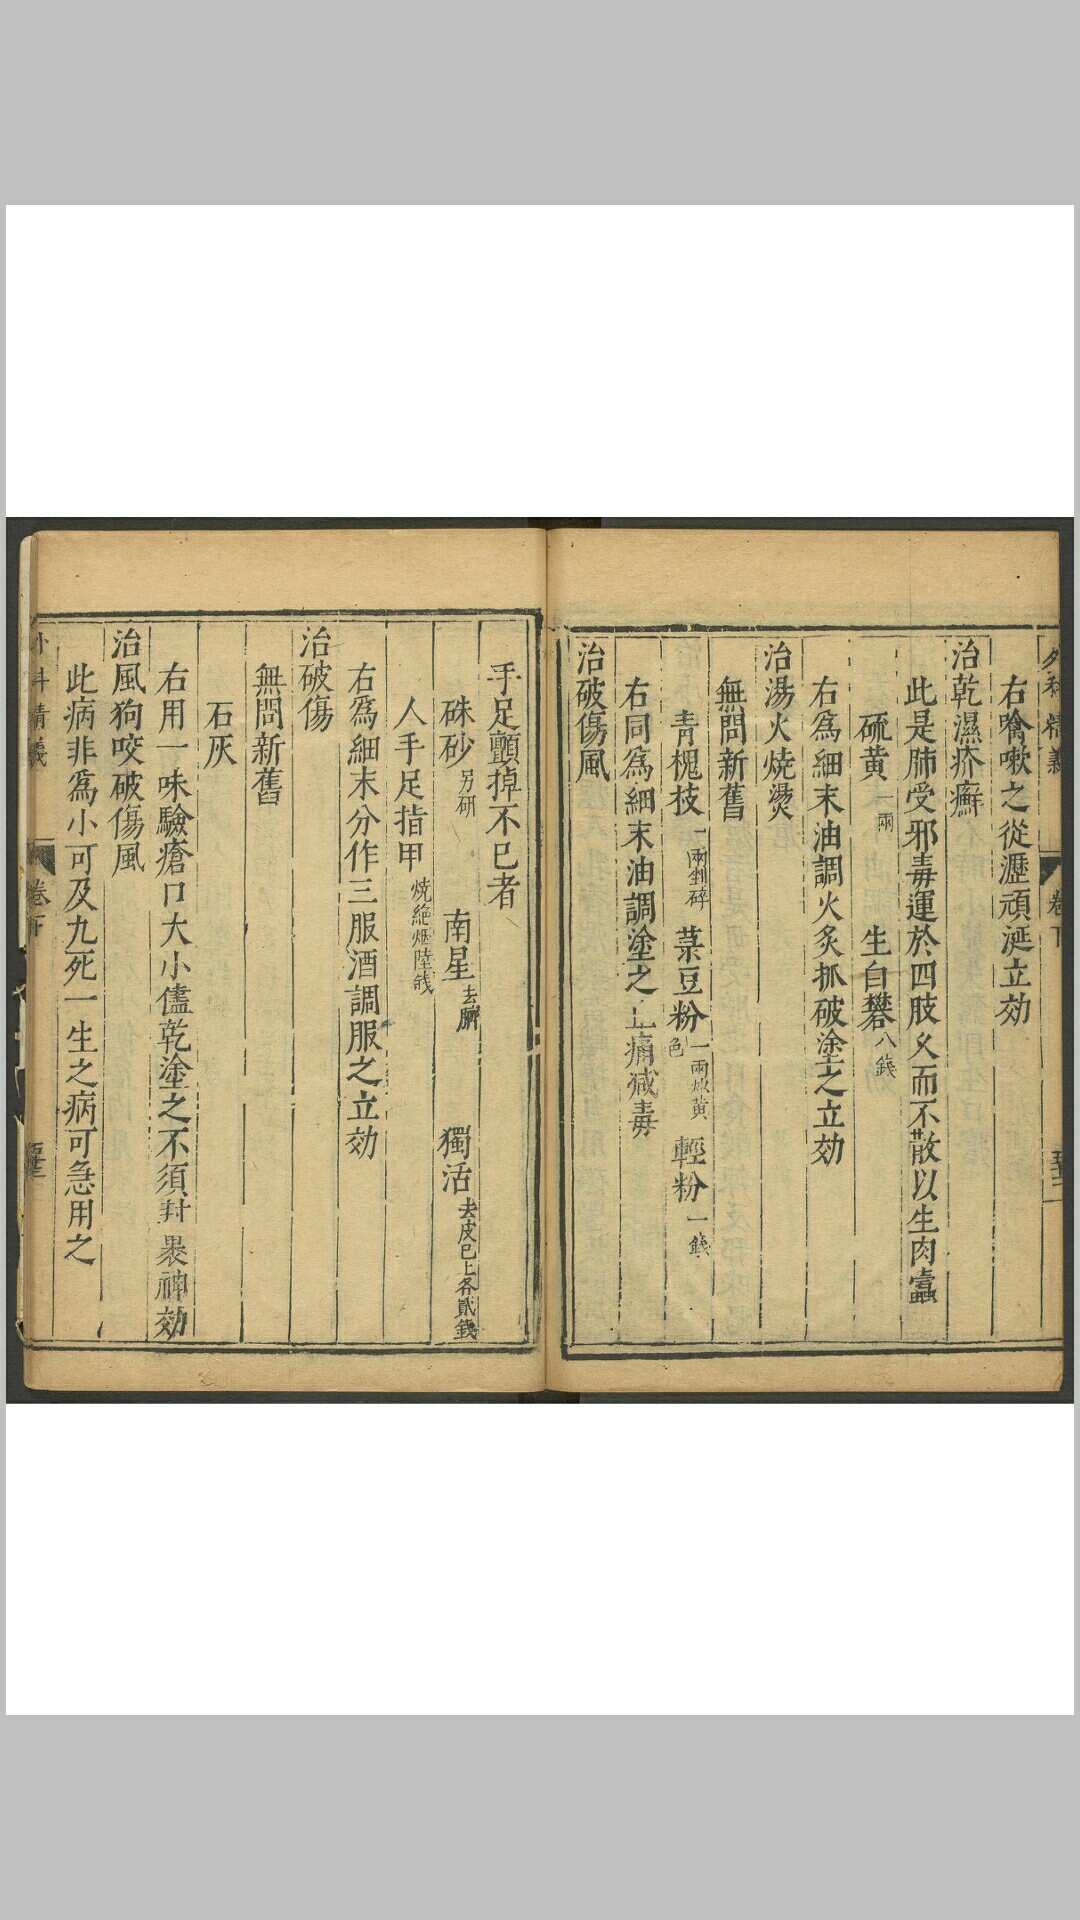 外科精義
卷下
右噙嗽之從瀝頑涎立効
治乾濕疥癬
此是肺受邪毒運於四肢久而不散以生肉䘌
硫黄一兩 生白礬八錢
右爲細末油調火炙抓破塗之立効
治湯火燒燙
無問新舊
青槐枝一兩剉碎 菉豆粉一兩炒黄色 輕粉一錢
右同爲細末油調塗之止痛減毒
治破傷風
手足顫掉不已者
硃砂另研 南星去臍 獨活去皮已上各貳錢
人手足指甲燒絶烟陸錢
右爲細末分作三服酒調服之立効
治破傷
無問新舊
石灰
右用一味驗瘡口大小儘乾塗之不須封裹神効
治風狗咬破傷風
此病非爲小可及九死一生之病可急用之
外科精義
卷下